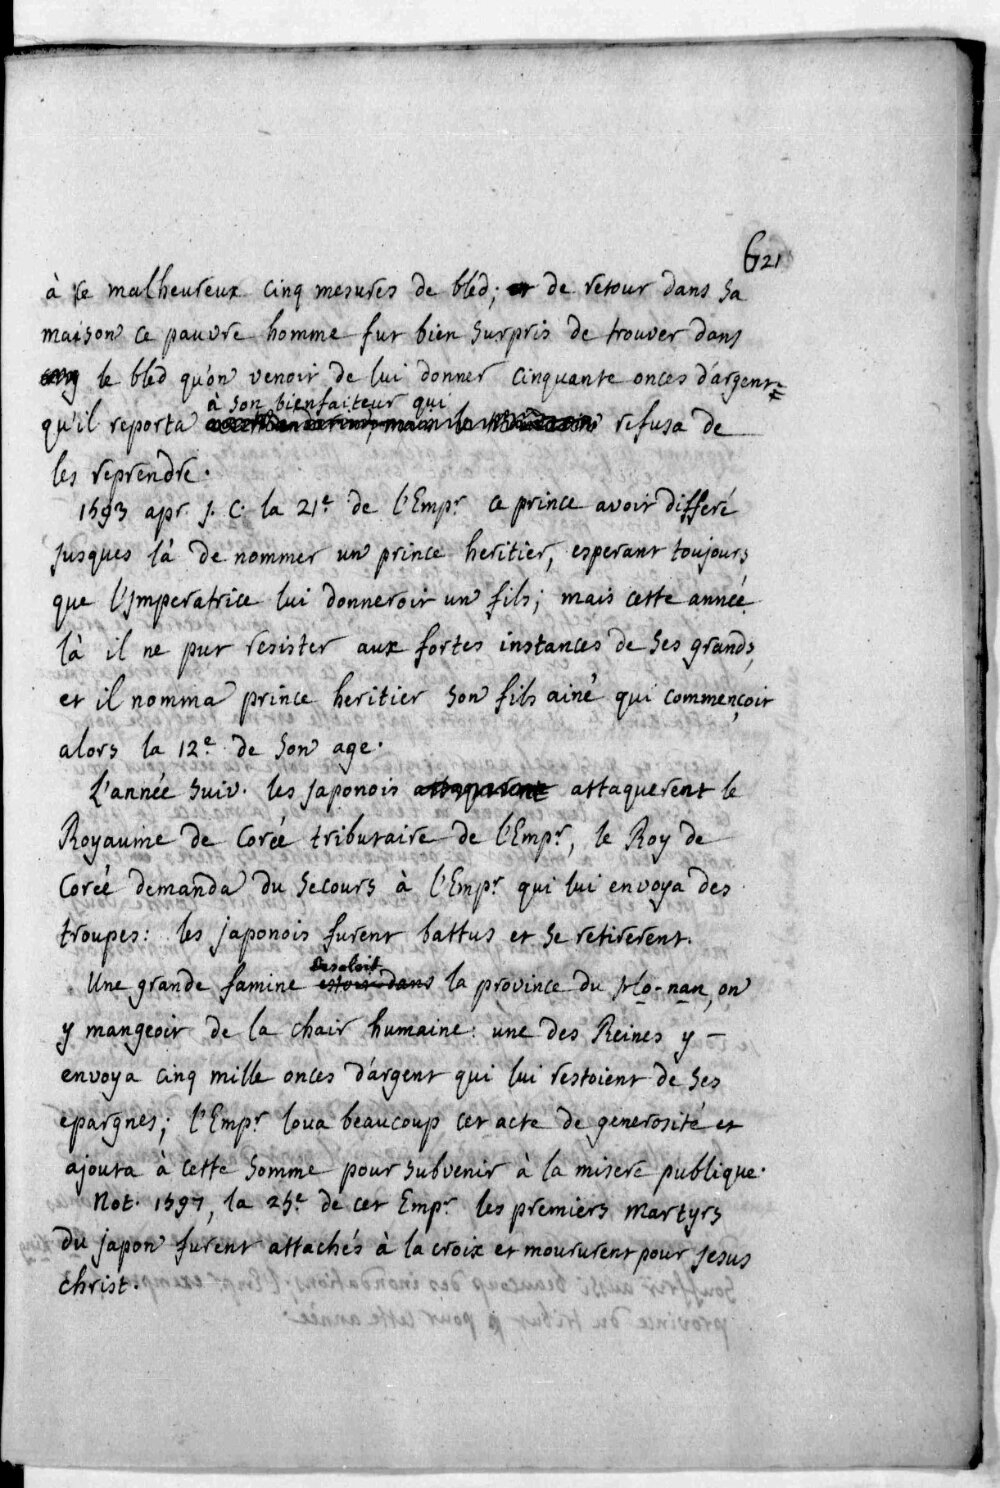 621
à ce malheureux cinq mesures de bled; de retour dans sa
maison ce pauvre homme fut bien surpris de trouver dans
le bled qu'on venoit de lui donner cinquante onces d'argent
à son bienfaiteur qui
qu'il reporta refusa de
les reprendre.
1593 apr. J. C. la 21e de l'Empr. ce prince avoit differé
jusques là de nommer un prince heritier, esperant toujours
que l'Imperatrice lui donneroit un fils; mais cette année
là il ne put resister aux fortes instances de ses grands,
et il nomma prince heritier son fils ainé qui commençoit
alors la 12e de son age.
L'année suiv. les japonois attaquerent le
Royaume de Corée tributaire de l'Empr, le Roy de
Corée demanda du secours à l'Empr. qui lui envoya des
troupes: les japonois furent battus et se retirerent.
desoloit
Une grande famine estoit dans la province du Ho-nan, on
y mangeoit de la chair humaine: une des Reines y
envoya cinq mille onces d'argent qui lui restoient de ses
epargnes; l'Empr. loua beaucoup cet acte de generosité et
ajouta à cette somme pour subvenir à la misere publique.
Not. 1597, la 25e de cet Empr. les premiers martyrs
du japon furent attachés à la croix et moururent pour Jesus
christ.